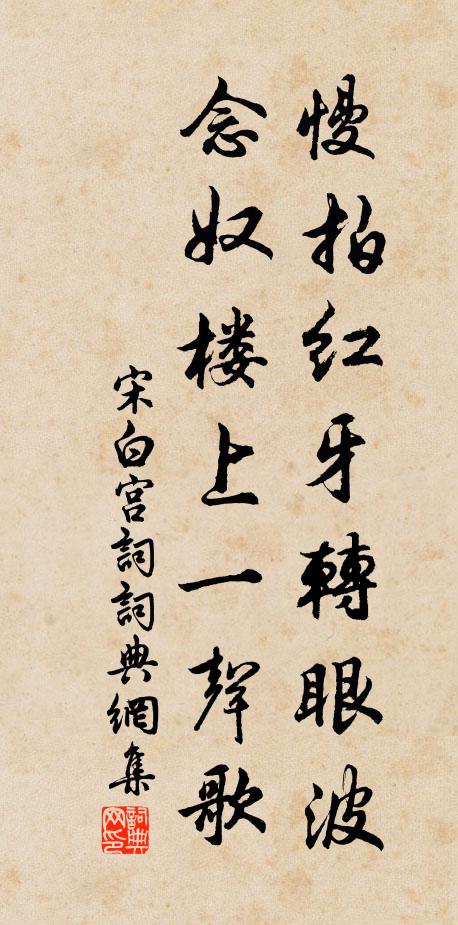 慢拍红牙轉眼波
念奴楼上一聲歌
宋白宫詞詞典網集
詞典网印